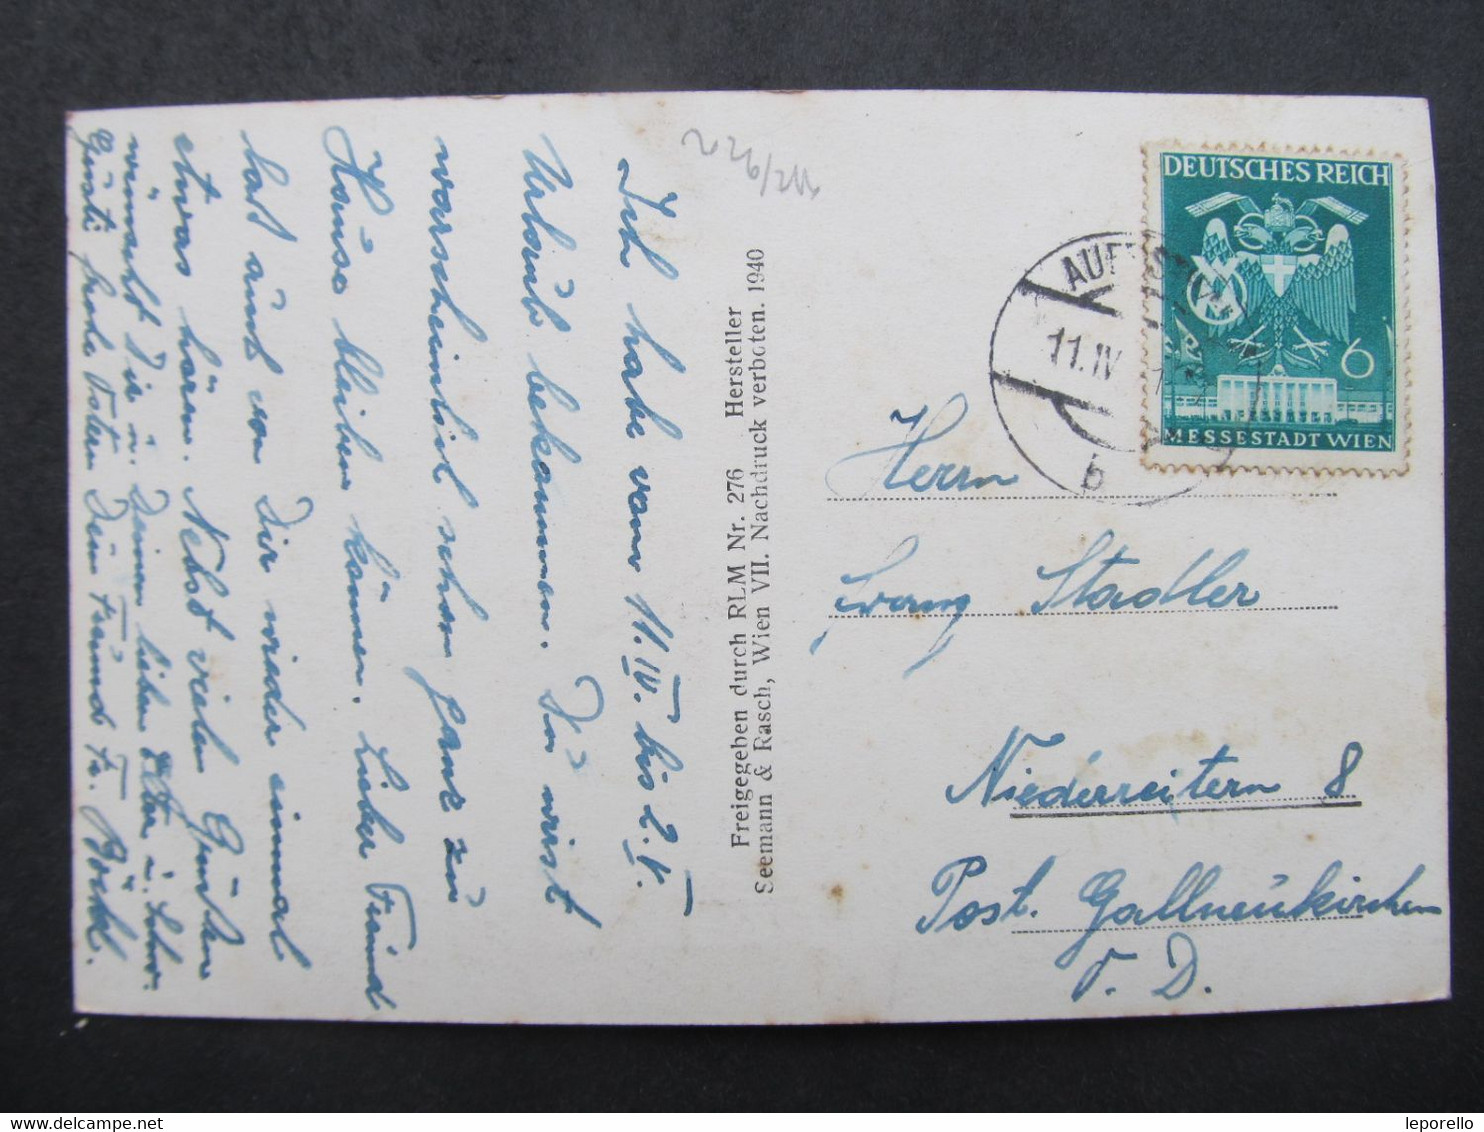 Ich habe vom 11. IV. bis 2. V.
Urlaub bekommen. Du wirst
warscheinlich schon ganz zu
Hause bleiben können. Lieber Freund
lass auch von Dir wieder einmal
etwas hören. Nebst vielen Grüßen
wünscht Dir u. Deinen lieben Eltern u.
frohe Ostern Dein Freund Fr. Böckl.
Freigegeben durch RLM Nr. 276 Hersteller
Seemann & Rasch, Wien VII. Nachdruck verboten. 1940
DEUTSCHES REICH
6
MESSESTADT WIEN
11. IV
b
Herrn
Franz Stadler
Niederreitern 8
Post. Gallneukirchen
O. D.
leporello